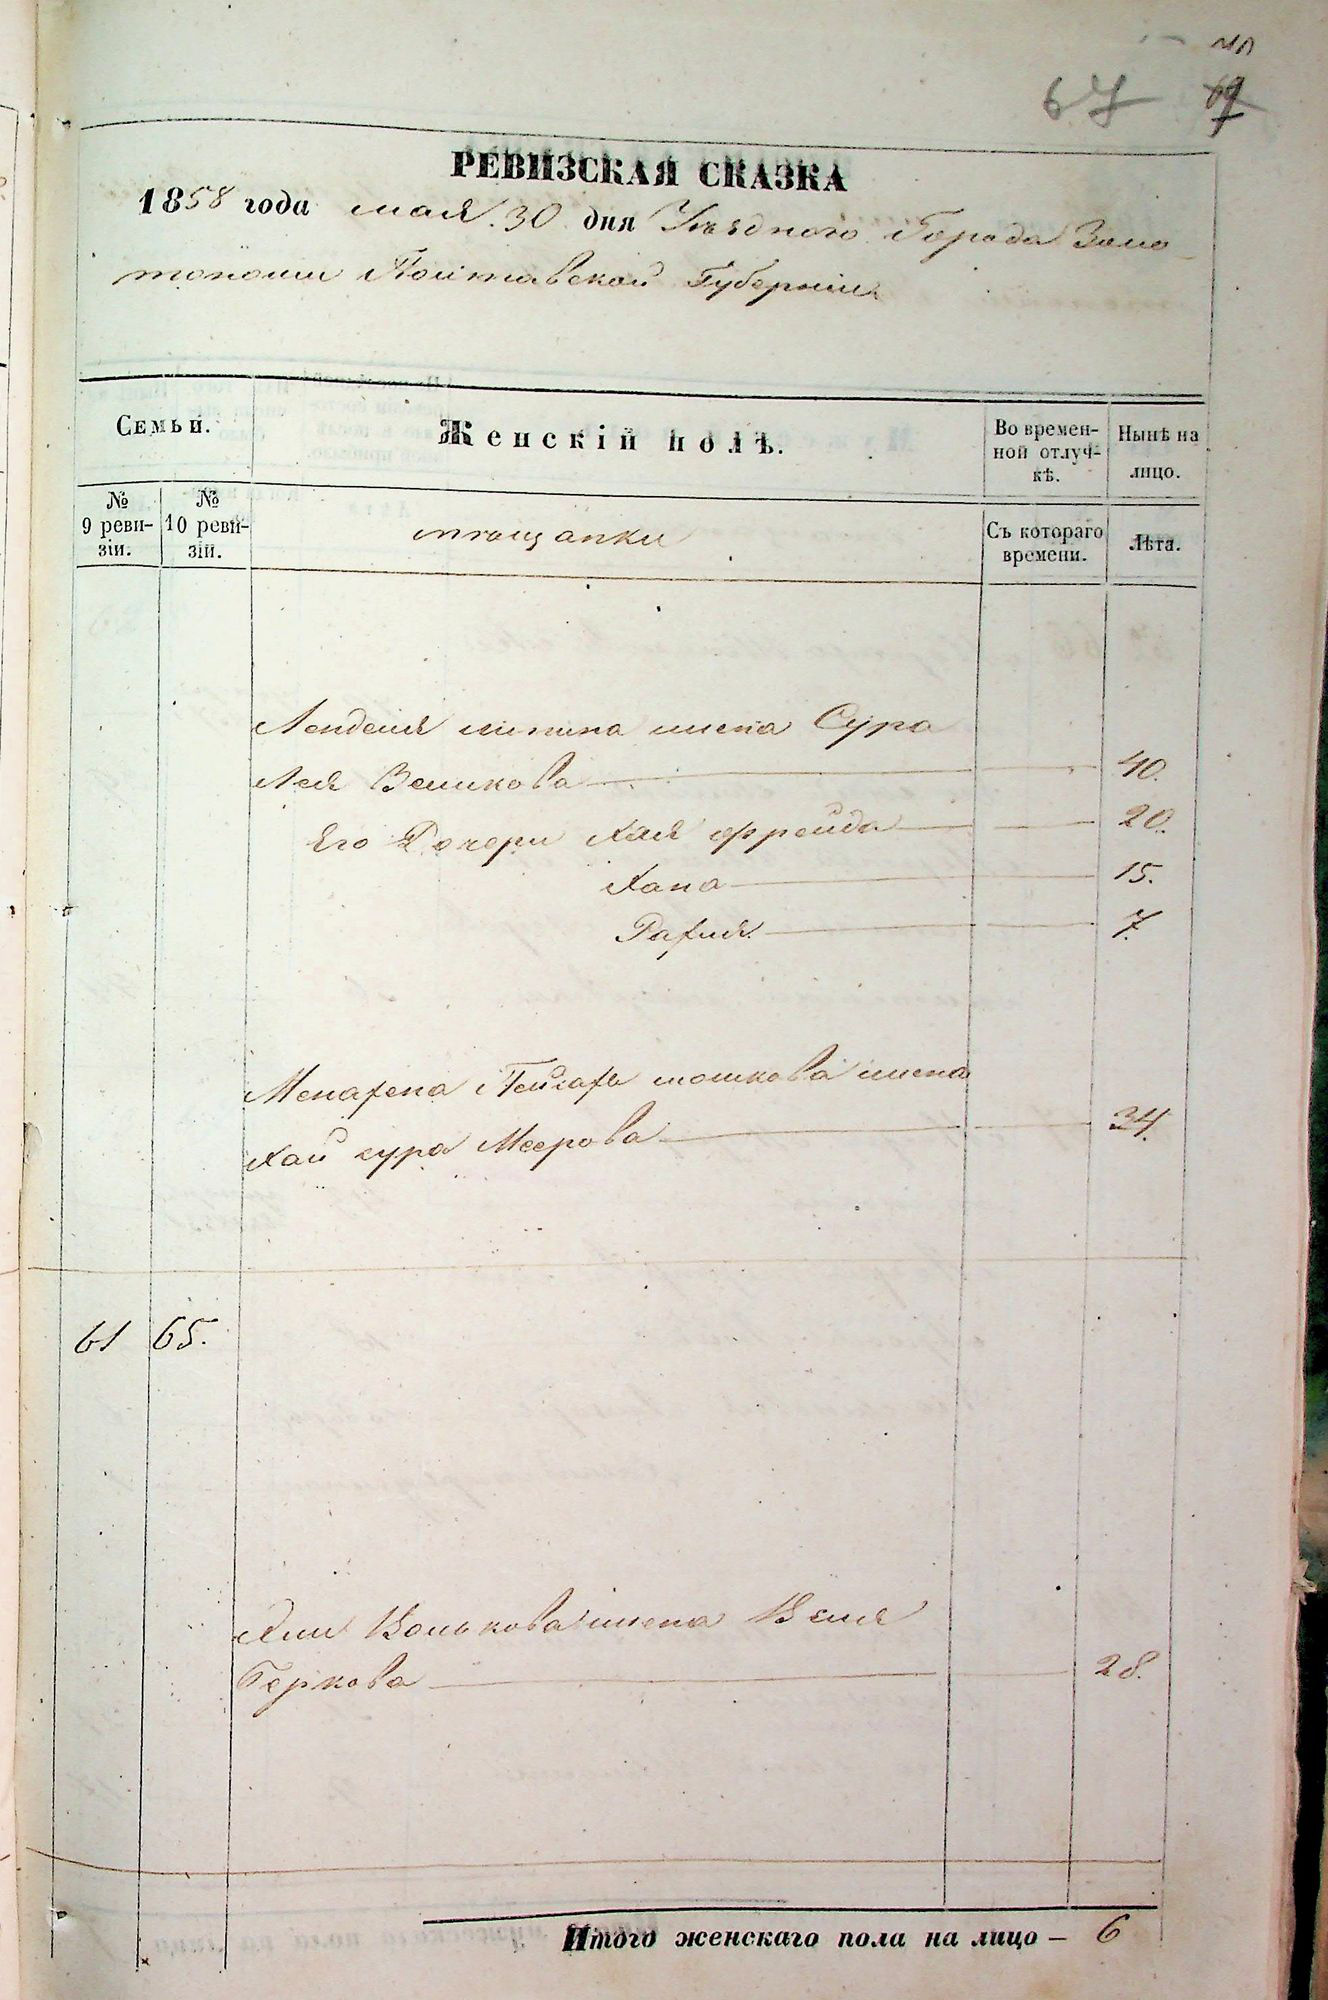 67 67
РЕВИЗСКАЯ СКАЗКА
1858 года мая 30 дня Уѣзднаго Города Золо
тоноши Полтавской Губерніи
Семьи.
Женскій полъ.
Во времен-
ной отлуч-
кѣ.
Нынѣ на
лицо.
№
9 реви-
зіи.
№
10 реви-
зіи.
мѣщанки
Съ котораго
времени.
Лѣта.
жена Сура
Лея Велькова 40.
Его Дочери Хая Фрейда 20.
Хана 15.
Рахля 7.
Пейсаха Мошкова жена
Хая сура Меерова 34.
61 65.
Волькова жена Беля
Беркова 28.
Итого женскаго пола на лицо — 6